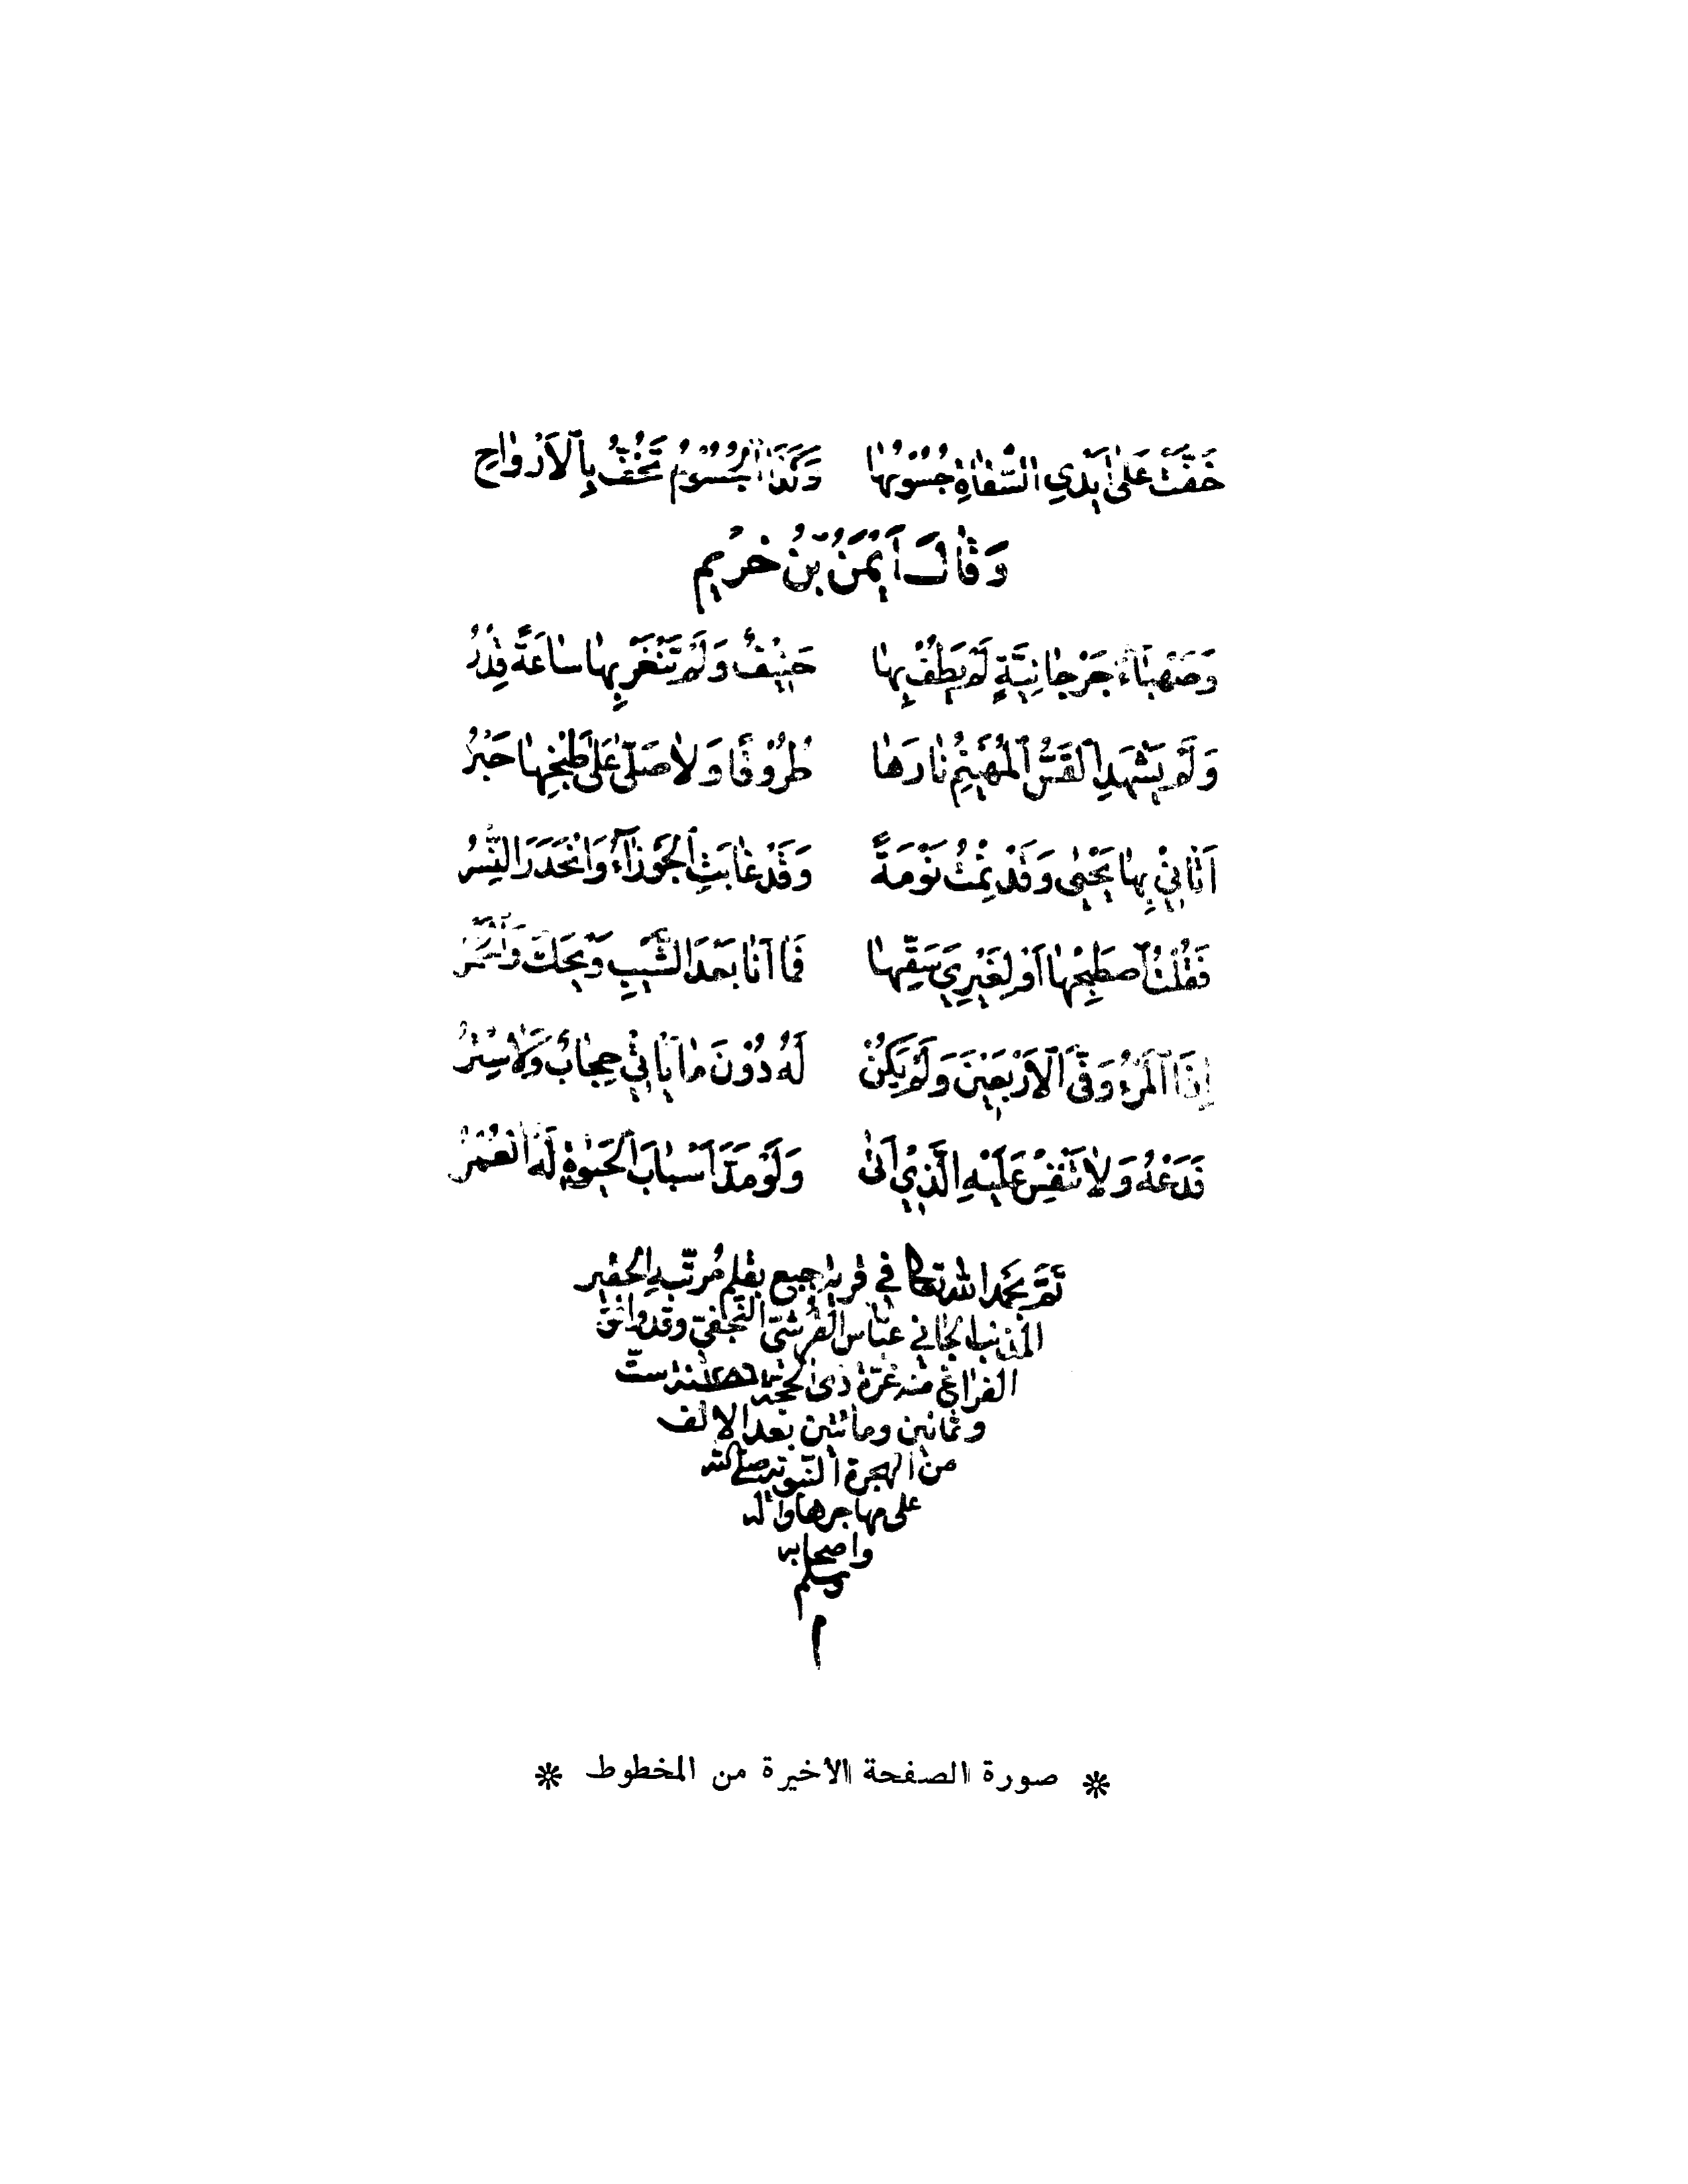 خَفَّتْ عَلىٰ اَيْدِي السُّقاةِ جُسُوْمُها وَكَذَا الْجُسُوْمُ تَخُفُّ بِالْاَرْواحِ
وَقالَ اَيْمَنُ بْنُ خُرَيْمٍ
وَصَهْباءَ جَرْجانِيَّةٍ لَمْ يَطُفْ بِها حَنِيْفٌ وَلَمْ تَنْغَرْ بِها ساعَةً قِدْرُ
وَلَمْ يَشْهَدِ الْقَسُّ الْمُهَيْنِمُ نارَها طُرُوْقًا وَلا صَلّىٰ عَلىٰ طَبْخِها حَبْرُ
اَتانِيْ بِها يَحْيىٰ وَقَدْ نِمْتُ نَوْمَةً وَقَدْ غابَتِ الْجَوْزآءُ وَانْحَدَرَ النَّسْرُ
فَقُلْتُ اصْطَبِحْها اَوْ لِغَيْرِيَ سَقِّها فَما اَنا بَعْدَ الشَّيْبِ وَيْحَكَ وَالْخَمْرُ
اِذَا الْمَرْءُ وَفَّى الْاَرْبَعِيْنَ وَلَمْ يَكُنْ لَهُ دُوْنَ ما يَاْتِيْ حِجابٌ وَلا سِتْرُ
فَدَعْهُ وَلا تَنْفِسْ عَلَيْهِ الَّذِيْ اَتىٰ وَلَوْ مَدَّ اَسْبابَ الْحَيٰوةِ لَهُ الْعُمْرُ
تَمَّ بحَمْدِ الله تعالى في قرية جبع بقلم مُرتّبه الحقير
المذنب الجاني عبّاس القُرشيّ النّجفيّ وقد وافق
الفراغ منه غرّة ذي الحجّة سنة ستّ
وثمانين ومائتين بعد الالف
من الهجرة النّبويّة صلّى الله
على مهاجرها واله
واصحابه
وسلم
م
* صورة الصفحة الأخيرة من المخطوط *